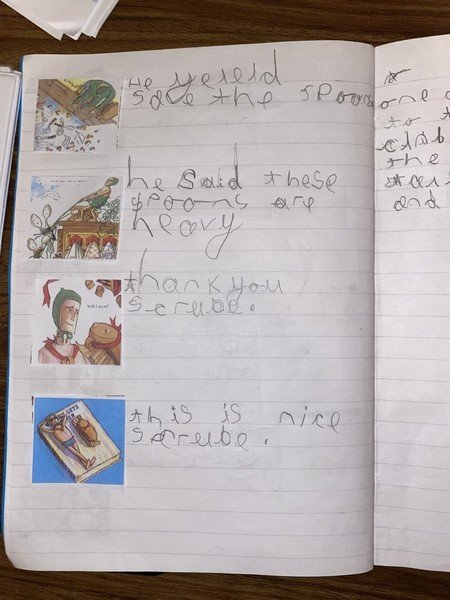 He yeleld
save the spoons
he said these
spoons are
heavy
thank you
scrube.
this is nice
scrube.
one
to
the
and